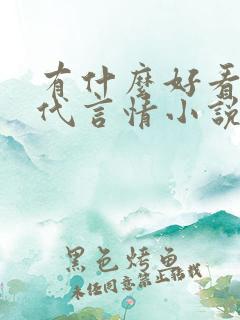 有什麼好看
代言情小說
黑色烤魚
未经同意禁止转载